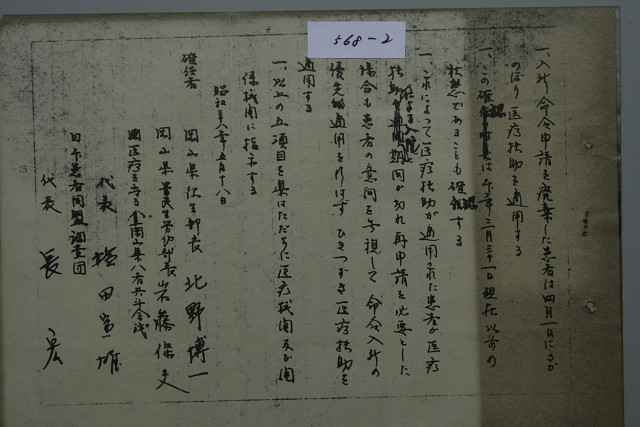 568-2
一、入所命令申請を廃棄した患者は四月一日にさか
のぼり医療扶助を適用する
一、この確認は今年三月三十一日現在以前の
状態であることも確認する
一、これによって医療扶助が適用された患者が医療
扶助による入院期間が切れ再申請を必要とした
場合も患者の意向を無視して命令入所の
優先的適用を行はずひきつづき医療扶助を
適用する
一、以上の五項目を県はたゞちに医療機関及び関
係機関に指示する
昭和三八年五月十八日
確任者
岡山県衛生部長 北野博一
岡山県民生労働部長 岩藤保夫
国医療を守る全岡山県八者共斗会議
代表 塩田富雄
日本患者同盟調査団
代表 長宏